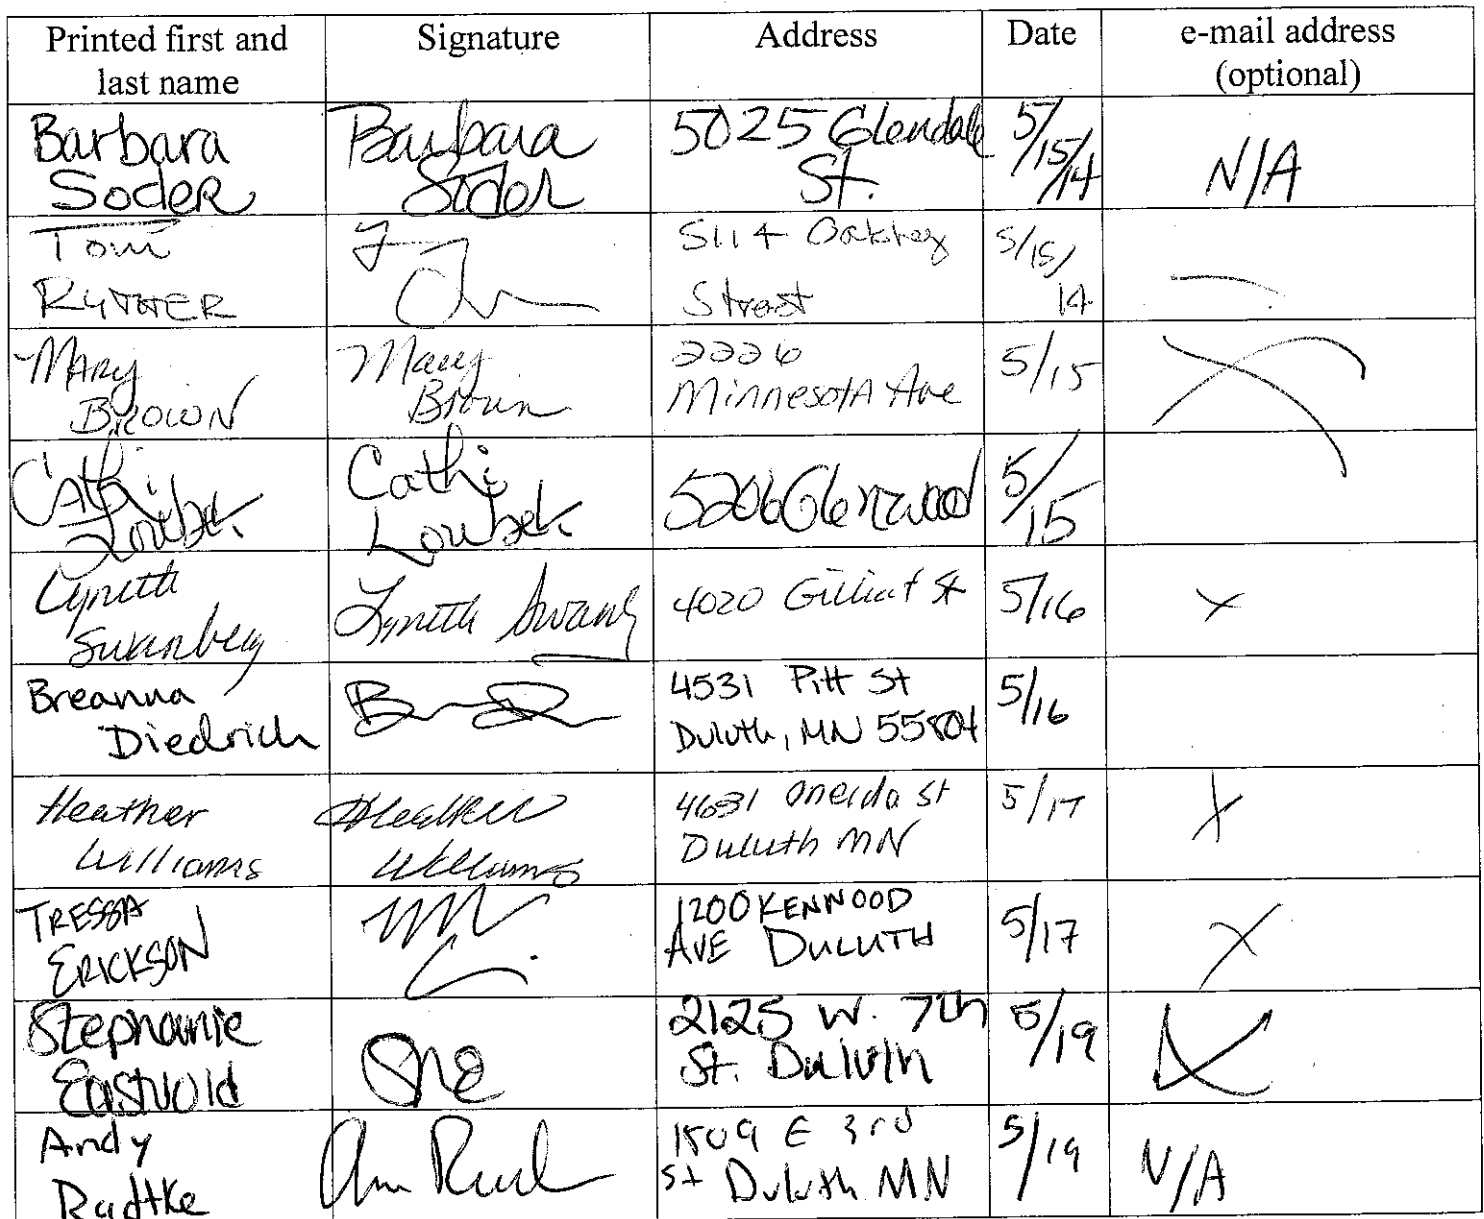 Printed first and last name | Signature | Address | Date | e-mail address (optional)
Barbara Soder | Barbara Soder | 5025 Glendale St. | 5/15/14 | N/A
Tom | 5114 Oakley Street | 5/15/14 | —
Mary Brown | Mary Brown | 2226 Minnesota Ave | 5/15
Cathi | Cathi | 5206 Glenwood | 5/15
Lyneth Swanberg | Lyneth Swanb | 4020 Gilliat St | 5/16 | X
Breanna Diedrich | 4531 Pitt St Duluth, MN 55804 | 5/16
Heather Williams | Heather Williams | 4631 Oneida St Duluth MN | 5/17 | X
TRESSA ERICKSON | 1200 KENWOOD AVE DULUTH | 5/17 | X
Stephanie Eastvold | 2125 W. 7th St. Duluth | 5/19 | X
Andy Radtke | 1809 E 3rd St Duluth MN | 5/19 | N/A